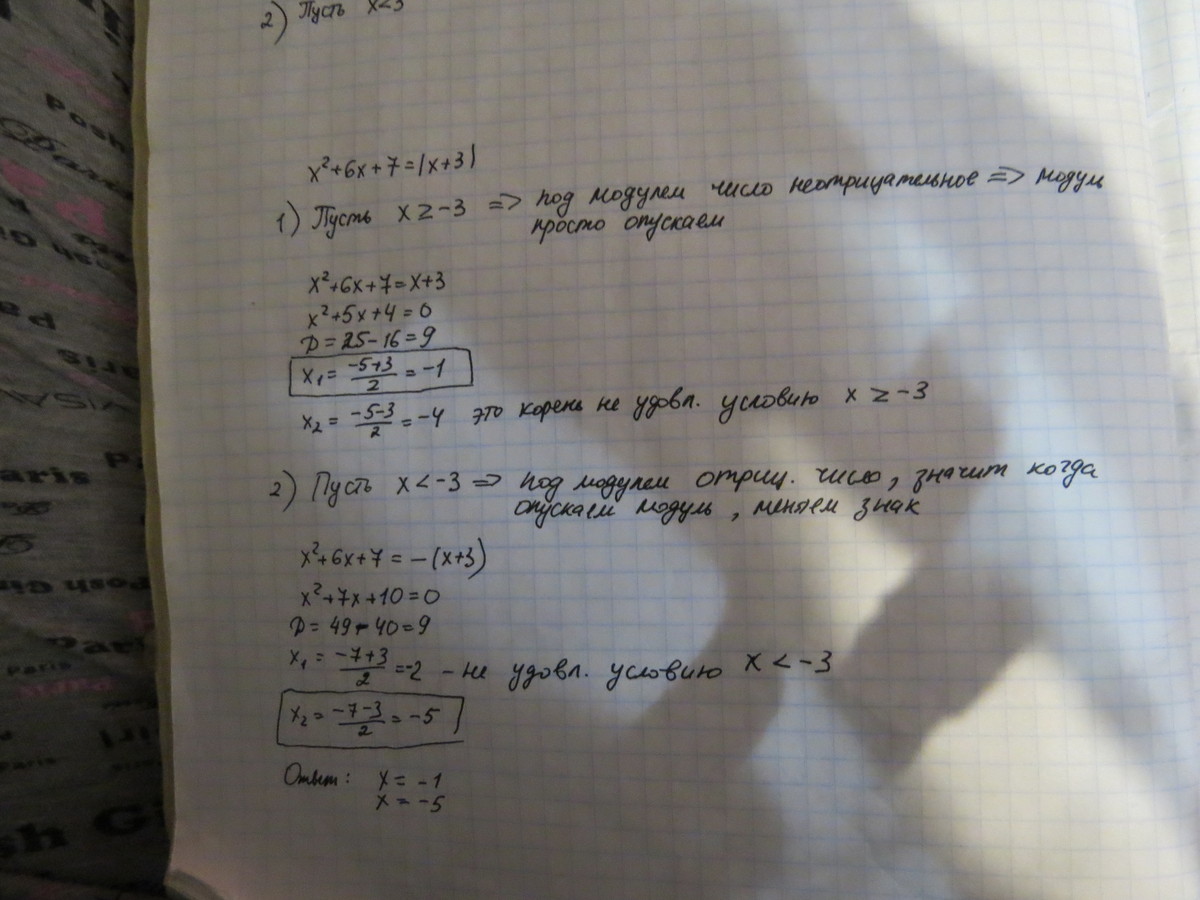 2) Пусть x<3
x²+6x+7=|x+3|
1) Пусть x≥-3 => под модулем число неотрицательное => модуль
просто опускаем
x²+6x+7=x+3
x²+5x+4=0
D=25-16=9
x₁= (-5+3)/2 = -1
x₂= (-5-3)/2 = -4 это корень не удовл. условию x≥-3
2) Пусть x<-3 => под модулем отриц. число, значит когда
опускаем модуль, меняем знак
x²+6x+7=-(x+3)
x²+7x+10=0
D=49-40=9
x₁= (-7+3)/2 =-2 - не удовл. условию x<-3
x₂= (-7-3)/2 = -5
Ответ: x=-1
x=-5
Posh
Paris
VISAV
Paris
Paris